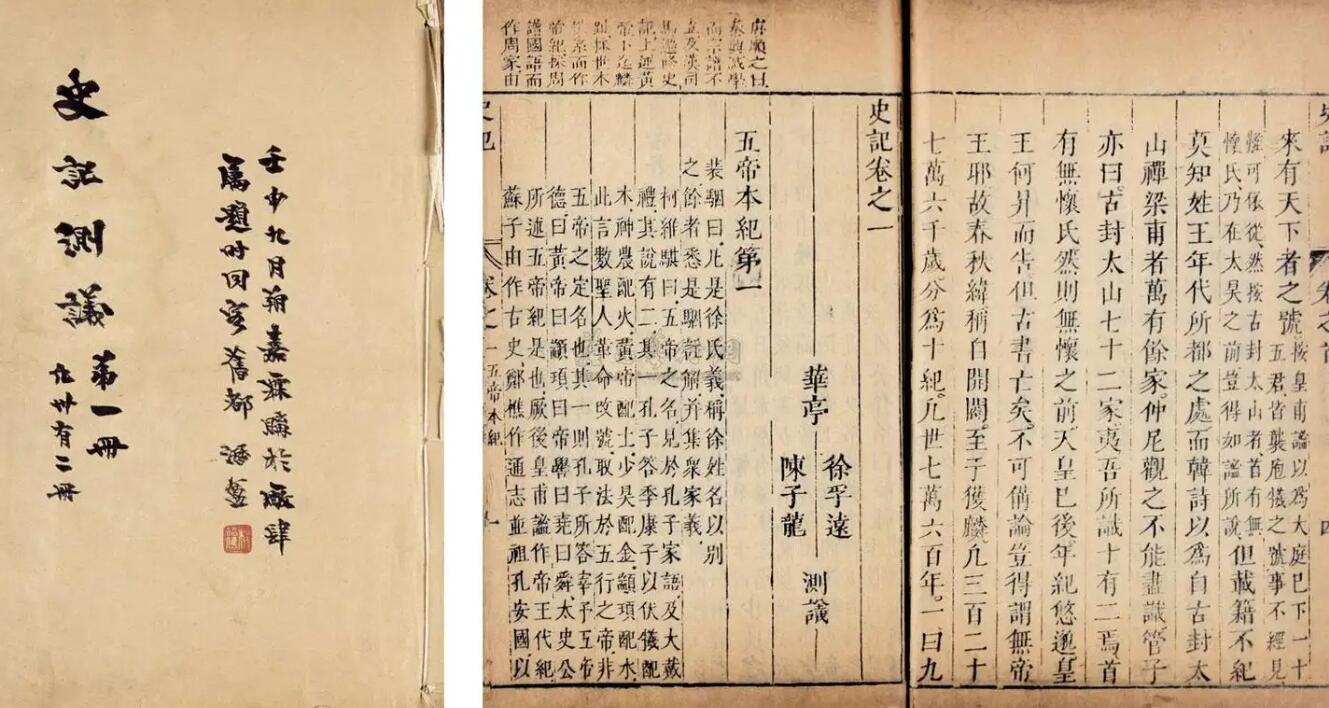 史記測議 第一冊
凡卅有二冊
壬申九月翰嘉森購於廠肆
屬題時同客舊都
史記
卷之首
四
來有天下者之號
按皇甫謐以為大庭巳下一十
五君皆襲庖犧之號事不經見
難可依從然按古封太山者首有無
懷氏乃在太昊之前豈得如謐所說
但載籍不紀
莫知姓王年代所都之處而韓詩以爲自古封太
山禪梁甫者萬有餘家仲尼觀之不能盡識管子
亦曰古封太山七十二家夷吾所識十有二焉首
有無懷氏然則無懷之前天皇巳後年紀悠邈皇
王何昇而告但古書亡矣不可備論豈得謂無帝
王耶故春秋緯稱自開闢至于獲麟凡三百二十
七萬六千歲分爲十紀凡世七萬六百年一曰九
之曰
秦典滅學
而宗譜不
立及漢司
馬遷修史
記上述黃
帝下迄麟
趾採世本
世系而作
帝紀採周
譜國語而
作周家由
史記卷之一
華亭
徐孚遠
陳子龍
測議
五帝本紀第一
裴駰曰凡是徐氏義稱徐姓名以別
之餘者悉是駰註解并集衆家義
柯維騏曰五帝之名見於孔子家語及大戴
禮其說有二其一孔子答季康子以伏犧配
木神農配火黃帝配土少昊配金顓頊配水
此言數聖人革命改號取法於五行之帝非
五帝之定名也其一則孔子所答宰予五帝
德曰黃帝曰顓頊曰帝嚳曰堯曰舜太史公
所述五帝紀是也厥後皇甫謐作帝王代紀
蘇子由作古史鄭樵作通志並祖孔安國以
史記
卷之一
五帝本紀
一